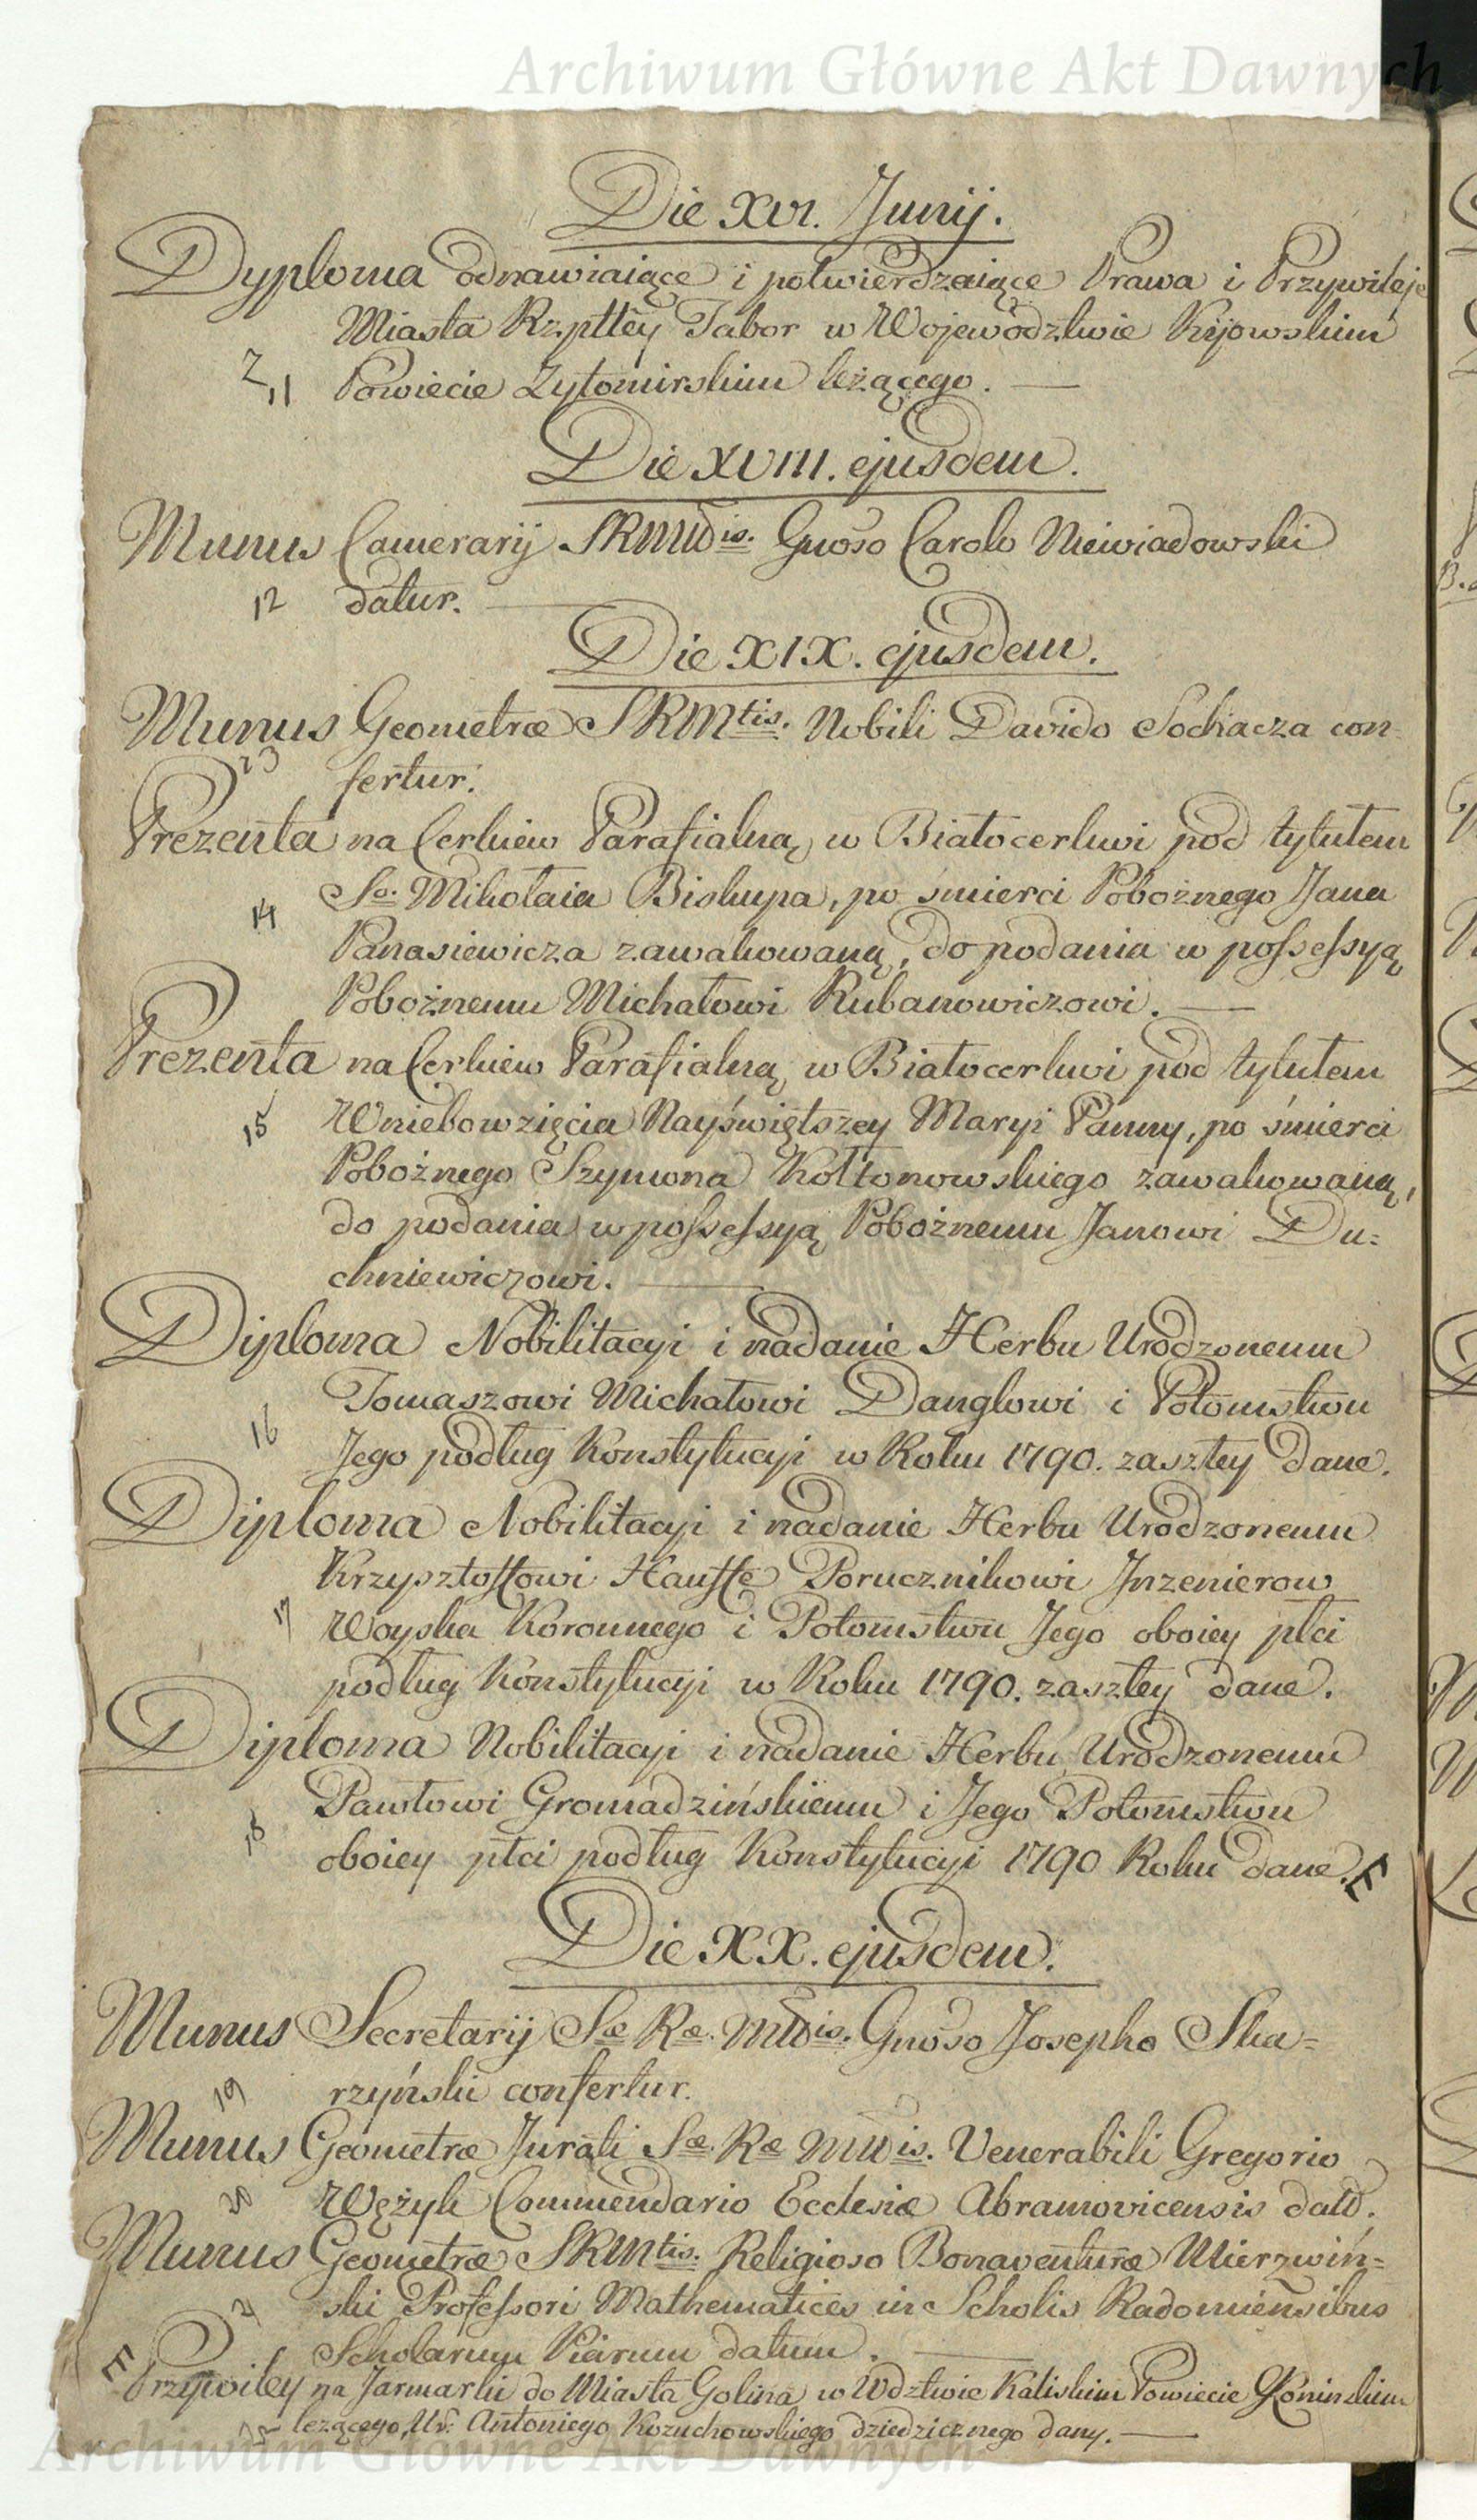 Archiwum Główne Akt Dawnych
Die XVI. Junij.
Dyploma odnawiaiące i potwierdzaiące Prawa i Przywileje
Miasta Rzpttey Tabor w Wojewodztwie Kijowskim
11 Powiecie Zytomirskim leżącego.
Die XVIII. ejusdem.
Munus Camerarij SRMttis. Gnoso Carolo Niewiadowski
12 datur.
Die XIX. ejusdem.
Munus Geometræ SRMtis. Nobili Davido Sochacza con-
fertur.
Prezenta na Cerkiew Parafialną w Białocerkwi pod tytułem
Sgo. Mikołaia Biskupa, po śmierci Pobożnego Jana
14
Panasiewicza zawakowaną, do podania w possessyą
Pobożnemu Michałowi Rubanowiczowi.
Prezenta na Cerkiew Parafialną w Białocerkwi pod tytułem
15 Wniebowzięcia Nayświętszey Maryi Panny, po śmierci
Pobożnego Szymona Kołtonowskiego zawakowaną,
do podania w possessyą Pobożnemu Janowi Du=
chniewiczowi.
Diploma Nobilitacyi i nadanie Herbu Urodzonemu
Tomaszowi Michałowi Danglowi i Potomstwu
16 Jego podług Konstytucyi w Roku 1790. zaszłey dane.
Diploma Nobilitacyi i nadanie Herbu Urodzonemu
Krzysztoffowi Hauffe Porucznikowi Inzenierow
17 Woyska Koronnego i Potomstwu Jego oboiey płci
podług Konstytucyi w Roku 1790. zaszłey dane.
Diploma Nobilitacyi i nadanie Herbu Urodzonemu
Pawłowi Gromadzińskiemu i Jego Potomstwu
18 oboiey płci podług Konstytucyi 1790 Roku dane. E
Die XX. ejusdem.
Munus Secretarij Sæ Ræ. Mttis. Gnoso Josepho Ska=
19 rzyński confertur.
Munus Geometræ Jurati Sæ. Ræ Mttis. Venerabili Gregorio
20 Wężyk Commendario Ecclesiæ Abramovicensis datr.
Munus Geometræ SRMtis. Religioso Bonaventuræ Mierzwiń=
21 ski Professori Mathematices in Scholis Radomiensibus
Scholarum Piarum datum.
E Przywiley na Jarmarki do Miasta Golina w Wdztwie Kaliskim Powiecie Konińskim
leżącego, Ur. Antoniego Kozuchowskiego dziedzicznego dany.
Archiwum Główne Akt Dawnych